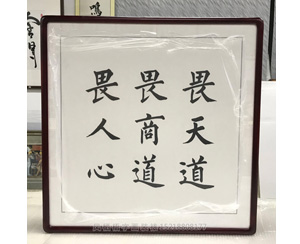 畏天道
畏商道
畏人心